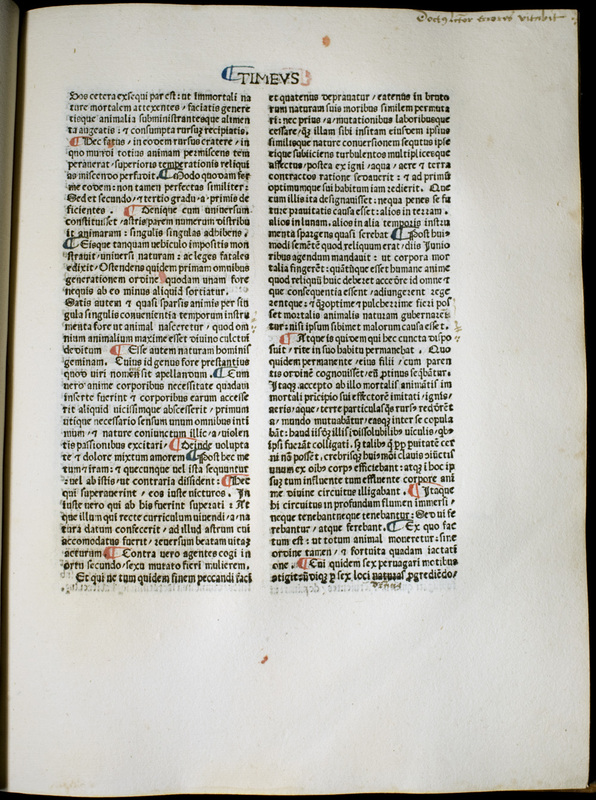 Doctus lector errores vitabit
TIMEVS
Vos cetera exsequi par est: ut immortali na
ture mortalem attexentes / faciatis genere
tisque animalia subministrantesque alimen
ta augeatis: ⁊ consumpta rursus recipiatis.
¶ Hec fatus / in eodem rursus cratere / in
quo mundi totius animam permiscens tem
perauerat / superioris temperationis reliqui
as miscendo perfudit. ¶ Modo quodam fer
me eodem: non tamen perfectas similiter:
Sed et secundo / ⁊ tertio gradu / a primis de
ficientes. ¶ Denique cum uniuersum
constituisset / astris parem numerum distribu
it animarum: singulis singulas adhibens.
¶ Eisque tanquam uehiculo impositis mon
strauit / uniuersi naturam: ac leges fatales
edixit / Ostendens quidem primam omnibus
generationem ordine quodam unam fore
nequis ab eo minus aliquid sortiatur.
Satis autem ⁊ quasi sparsis animis per sin
gula singulis conuenientia temporum instru
menta fore ut animal nasceretur / quod om
nium animalium maxime esset diuino cultui
deditum ¶ Esse autem naturam hominis
geminam. Cuius id genus fore prestantius
quod uiri nomen sit apellandum. ¶ Cum
uero anime corporibus necessitate quadam
inserte fuerint ⁊ corporibus earum accesse
rit aliquid uicissimque abscesserit / primum
utique necessario sensum unum omnibus inti
mum / ⁊ nature coniunctum illic / a uiolen
tis passionibus excitari / ¶ Deinde uolupta
te ⁊ dolore mixtum amorem ¶ Post hec me
tum / iram: ⁊ quecunque uel ista sequuntur
: uel ab istis / ut contraria dissident: ¶ Hec
qui superauerint / eos iuste uicturos. In
iuste uero qui ab his fuerint superati: At
que illum qui recte curriculum uiuendi / a / na
tura datum confecerit / ad illud astrum cui
accomodatus fuerit / reuersum beatam uitam
acturum ¶ Contra uero agentes cogi in
ortu secundo / sexu mutato fieri mulierem.
Et qui ne tum quidem finem peccandi faci
et quatenus deprauatur / eatenus in bruto
rum naturam suis moribus similem permuta
ri: nec prius / a / mutationibus laboribusque
cessare / quam illam sibi insitam eiusdem ipsius
similisque nature conuersionem sequtus ipse
rique subiiciens turbulentos multiplicesque
affectus / postea ex igni / aqua / aere ⁊ terra
contractos ratione sedauerit: ⁊ ad primum
optimumque sui habitum iam redierit. Que
cum illis ita designauisset: nequa penes se fu
ture prauitatis causa esset: alios in terram.
alios in lunam. alios in alia temporis instru
menta spargens quasi serebat ¶ Post huius
modi sementem quod reliquum erat / diis iunio
ribus agendum mandauit: ut corpora mor
talia fingerent: quantumque esset humane anime
quod reliquum huic deberet accedere id omne ⁊
que consequentia essent / adiungerent rege
rentque: ⁊ quam optime ⁊ pulcherrime fieri pos
set mortalis animalis naturam gubernarent
tur: nisi ipsum sibimet malorum causa esset.
¶ Atque is quidem qui hec cuncta dispo
suit / rite in suo habitu permanebat. Quo
quidem permanente / eius filii / cum paren
tis ordinem cognouissent / eum protinus sequebantur.
Itaque accepto ab illo mortalis animantis im
mortali principio sui effectorem imitati / ignis /
aeris / aque / terre particulasque rursus reddendas
a / mundo mutuabantur / easque inter se copula
bant: haud iisdem illis indissolubilibus uinculis / quibus
ipsi fuerant colligati. sed talibus que propter paruitatem cer
ni non posset. crebrisque huiusmodi clauis coniunctis
unum ex omnibus corpus efficiebant: atque in hoc ip
sum tum influente tum effluente corpore ani
me diuine circuitus illigabant. ¶ Itaque
hi circuitus in profundum flumen immersi /
neque tenebant neque tenebantur: sed ui fe
rebantur / atque ferebant. ¶ Ex quo fac
tum est: ut totum animal moueretur: sine
ordine tamen / ⁊ fortuita quadam iactati
one. ¶ Cui quidem sex peruagari motibus
contigit: undique per sex loci naturas progrediendo /